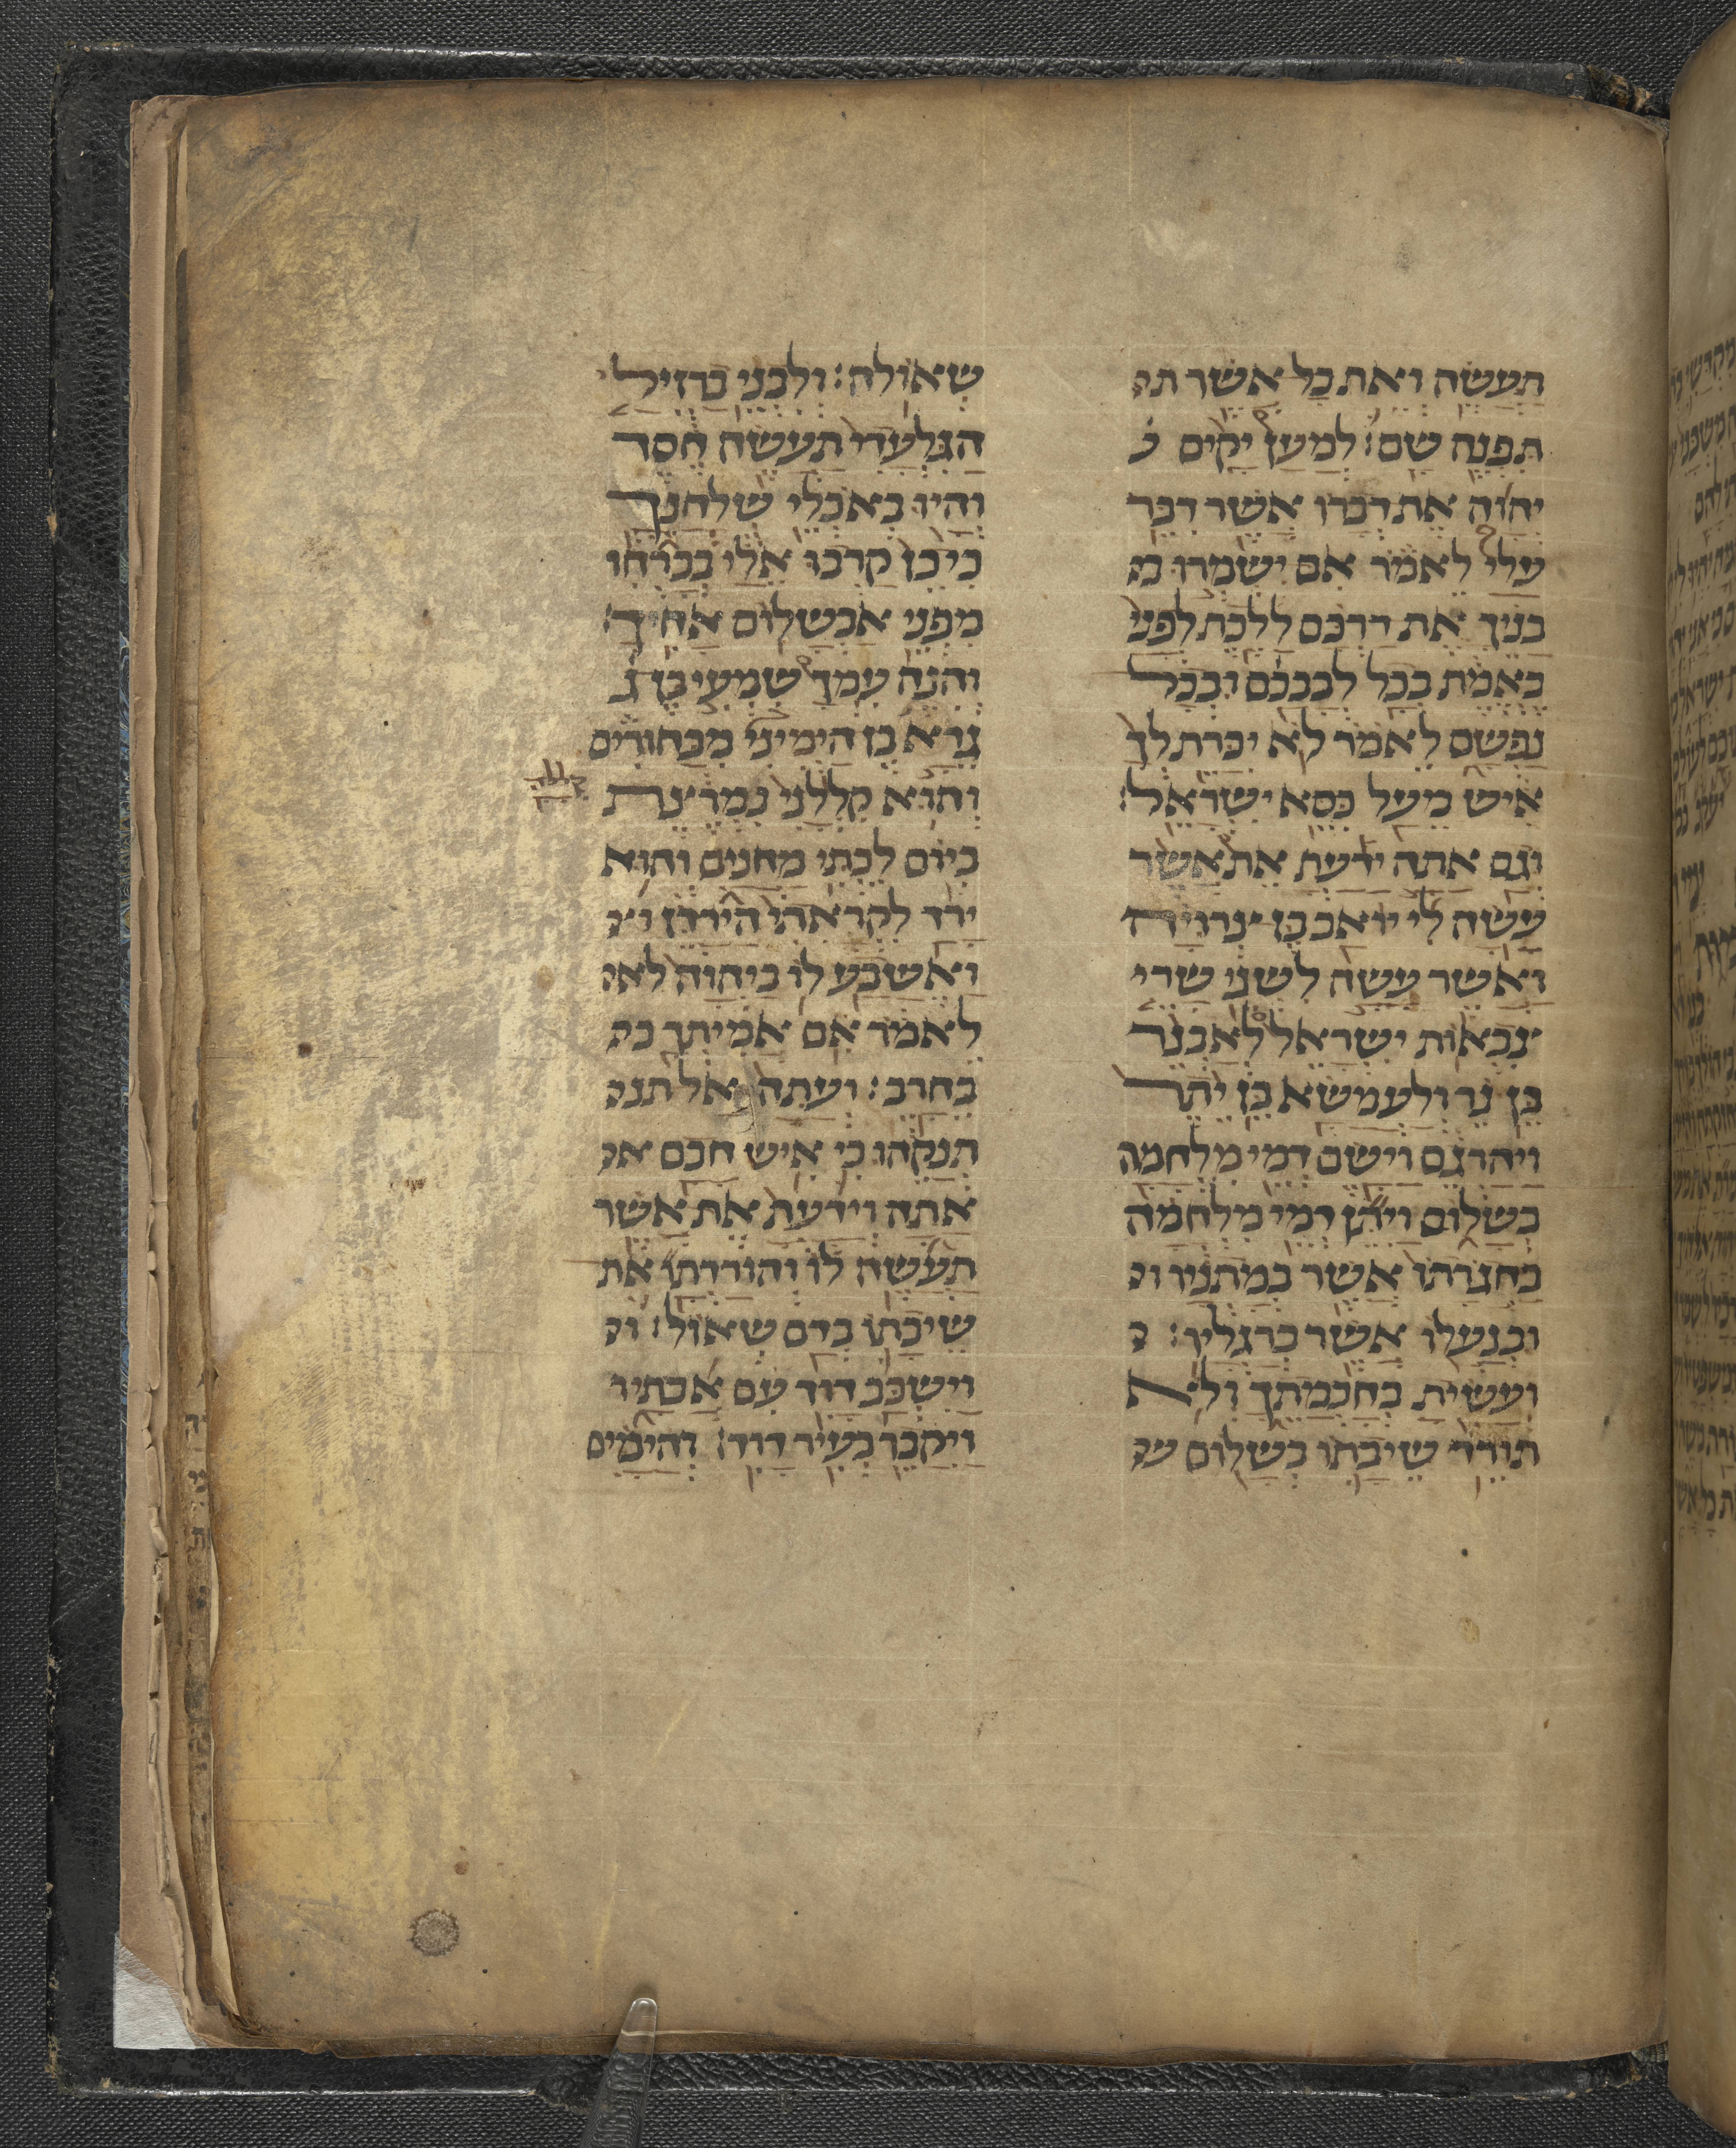 תעשה ואת כל אשר ת
תפנה שם׃ למען יקים
יהוה את דברו אשר דבר
עלי לאמר אם ישמרו
בניך את דרכם ללכת לפני
באמת בכל לבבכם ובכל
נפשם לאמר לא יכרת לך
איש מעל כסא ישראל׃
וגם אתה ידעת את אשר
עשה לי יואב בן צרויה
ואשר עשה לשני שרי
צבאות ישראל לאבנר
בן נר ולעמשא בן יתר
ויהרגם וישם דמי מלחמה
בשלום ויתן דמי מלחמה
בחגרתו אשר במתניו ו
ובנעלו אשר ברגליו׃
ועשית כחכמתך ולא
תורד שיבתו בשלום ש
שאולה׃ ולבני ברזילי
הגלעדי תעשה חסד
והיו באכלי שלחנך
כי כן קרבו אלי בברחו
מפני אבשלום אחיך׃
והנה עמך שמעי בן ג
גרא בן הימיני מבחורים
והוא קללני נמרצת קללה
ביום לכתי מחנים והוא
ירד לקראתי הירדן ו
ואשבע לו ביהוה לא
לאמר אם אמיתך ב
בחרב׃ ועתה אל תנ
תנקהו כי איש חכם א
אתה וידעת את אשר
תעשה לו והורדת את
שיבתו בדם שאול׃ ו
וישכב דוד עם אבתיו
ויקבר בעיר דוד׃ והימים